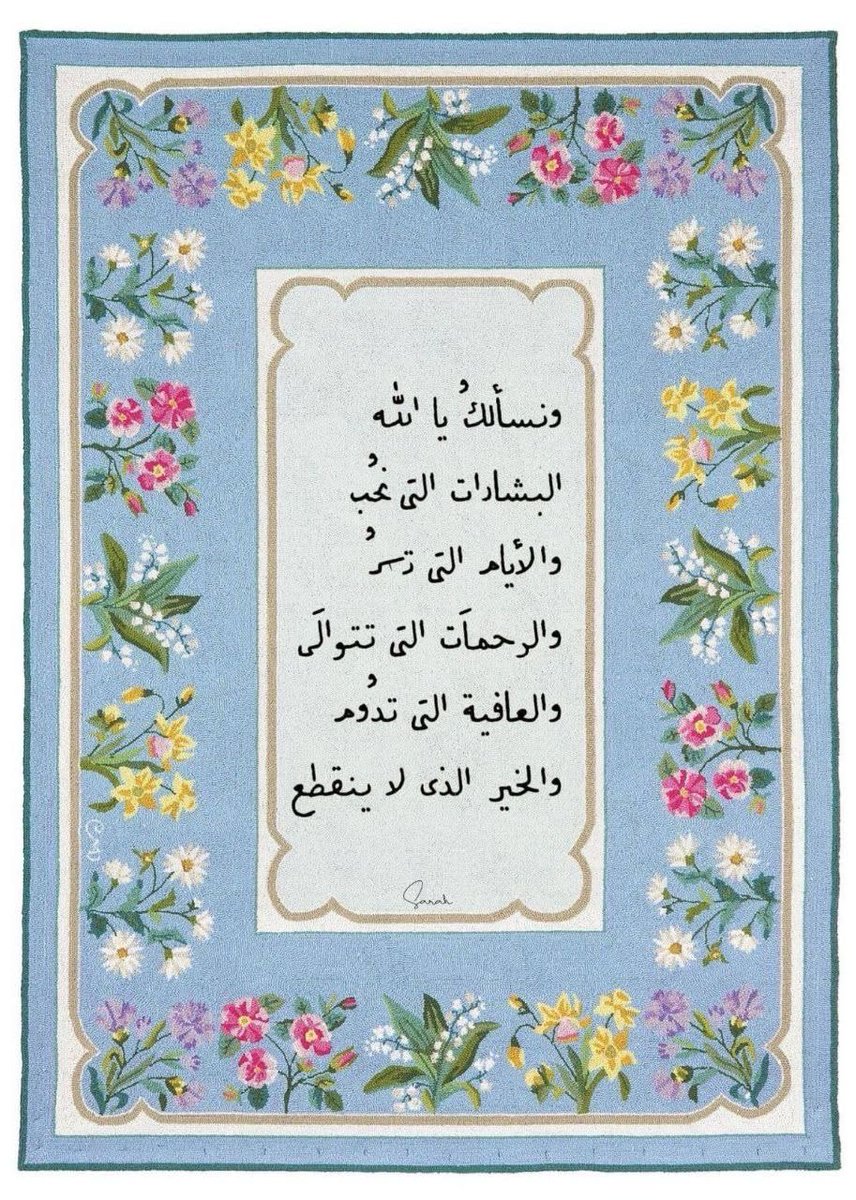 ونسألكُ يا الله
البشارات التى نحُب
والأيام التى تسرُ
والرحمَات التى تتوالَى
والعافية التى تدوُم
والخير الذى لا ينقطع
Sarah